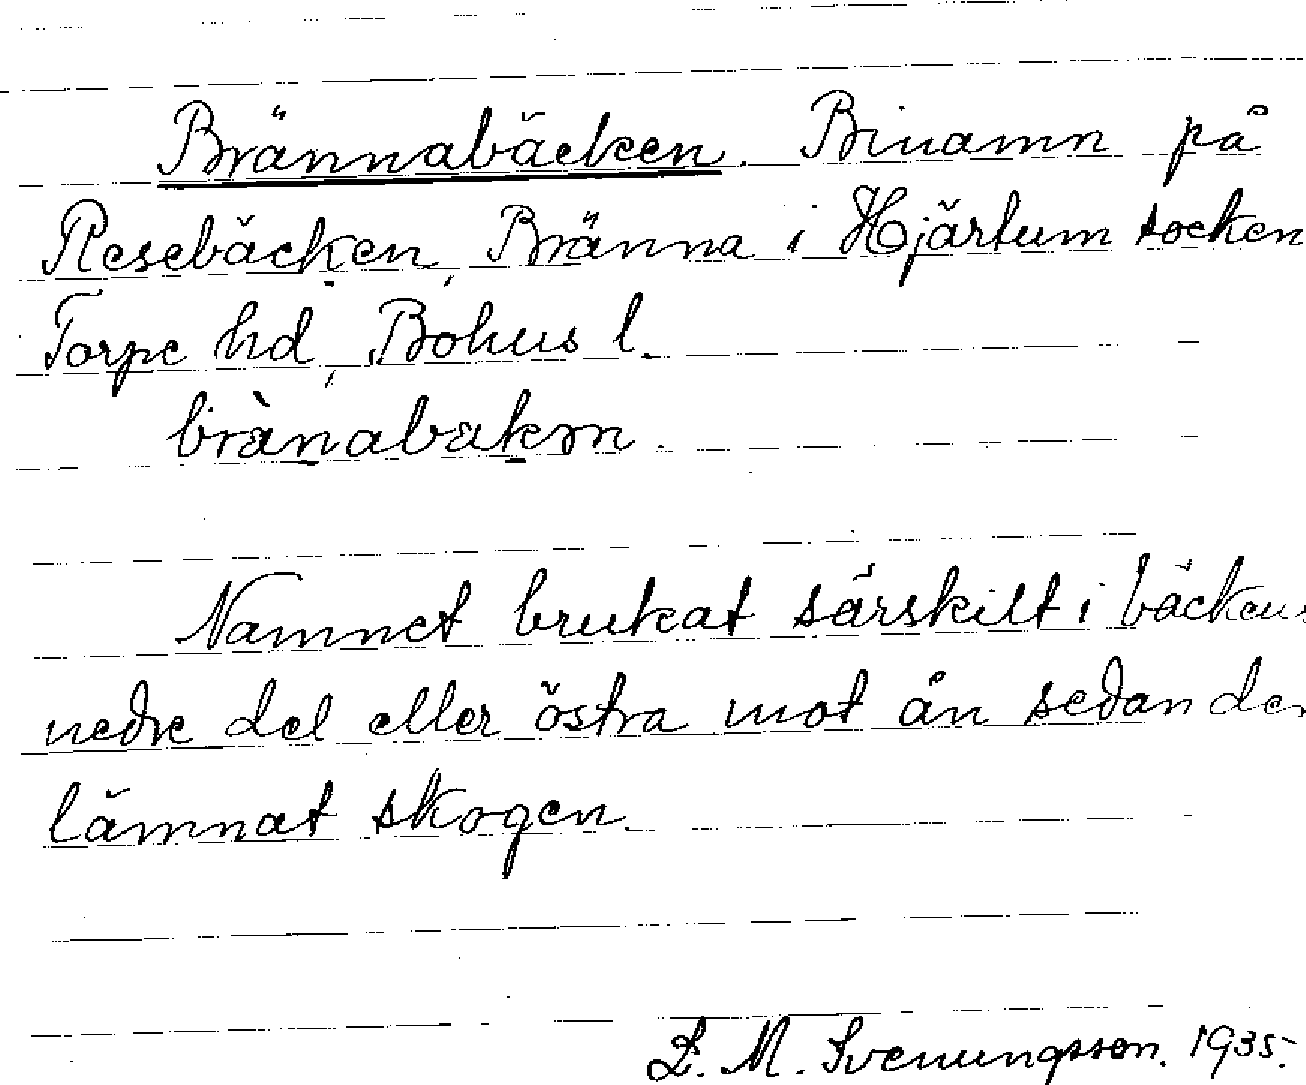 Brännabäcken. Binamn på
Resebäcken, Bränna i Hjärtum socken
Torpe hd, Bohus l.
brànabækən.
Namnet brukat särskilt i bäckens
nedre del eller östra mot ån sedan den
lämnat skogen.
L. M. Svenungsson. 1935.